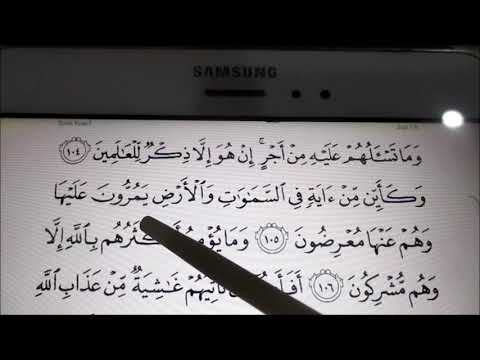 SAMSUNG
وَمَا تَسْـَٔلُهُمْ عَلَيْهِ مِنْ أَجْرٍ ۚ إِنْ هُوَ إِلَّا ذِكْرٌ لِّلْعَٰلَمِينَ ١٠٤
وَكَأَيِّن مِّنْ ءَايَةٍ فِى ٱلسَّمَٰوَٰتِ وَٱلْأَرْضِ يَمُرُّونَ عَلَيْهَا
وَهُمْ عَنْهَا مُعْرِضُونَ ١٠٥ وَمَا يُؤْمِ كْثَرُهُم بِٱللَّهِ إِلَّا
وَهُم مُّشْرِكُونَ ١٠٦ أَفَأَ تَأْتِيَهُمْ غَٰشِيَةٌ مِّنْ عَذَابِ ٱللَّهِ